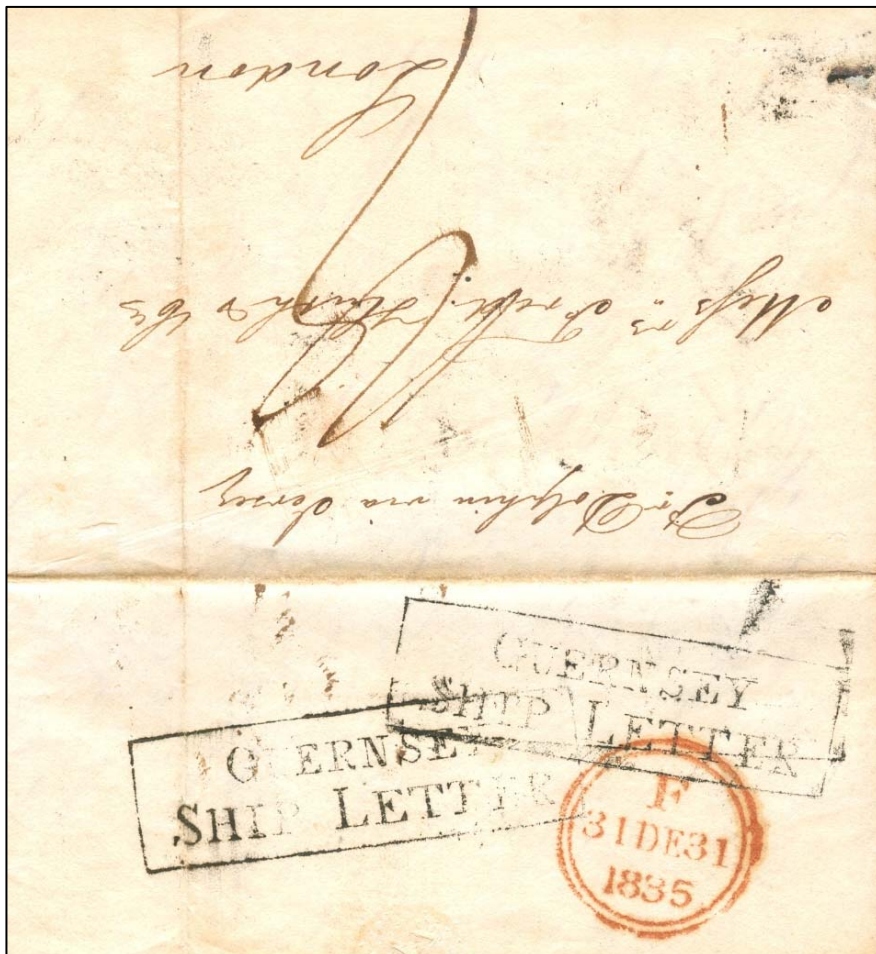 Pr Dolphin via Jersey
Messrs Fredk. Huth & Co
London
GUERNSEY
SHIP LETTER
GUERNSEY
SHIP LETTER
F
31DE31
1835